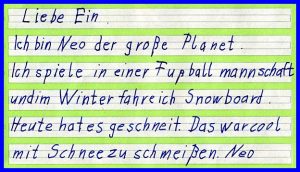 Liebe Ein.
Ich bin Neo der große Planet.
Ich spiele in einer Fußball mannschaft
undim Winter fahreich Snowboard.
Heute hat es geschneit. Das war cool
mit Schnee zu schmeißen. Neo